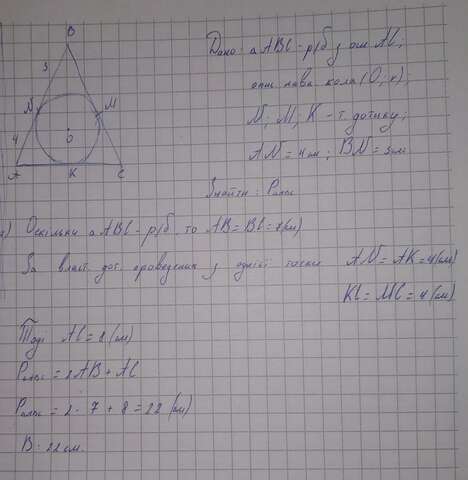 B
Дано: △ABC - р/б з осн. AC;
3
опис. навк. кола (O; r);
N M
N; M; K - т. дотику;
O
4
AN = 4 см; BN = 3 см.
A K C
Знайти: Pавс
Оскільки △ABC - р/б, то AB = BC = 7 (см)
За власт. дот. проведених з однієї точки AN = AK = 4 (см)
KC = MC = 4 (см)
Тоді AC = 8 (см)
Pавс = 2AB + AC
Pавс = 2 · 7 + 8 = 22 (см)
В: 22 см.